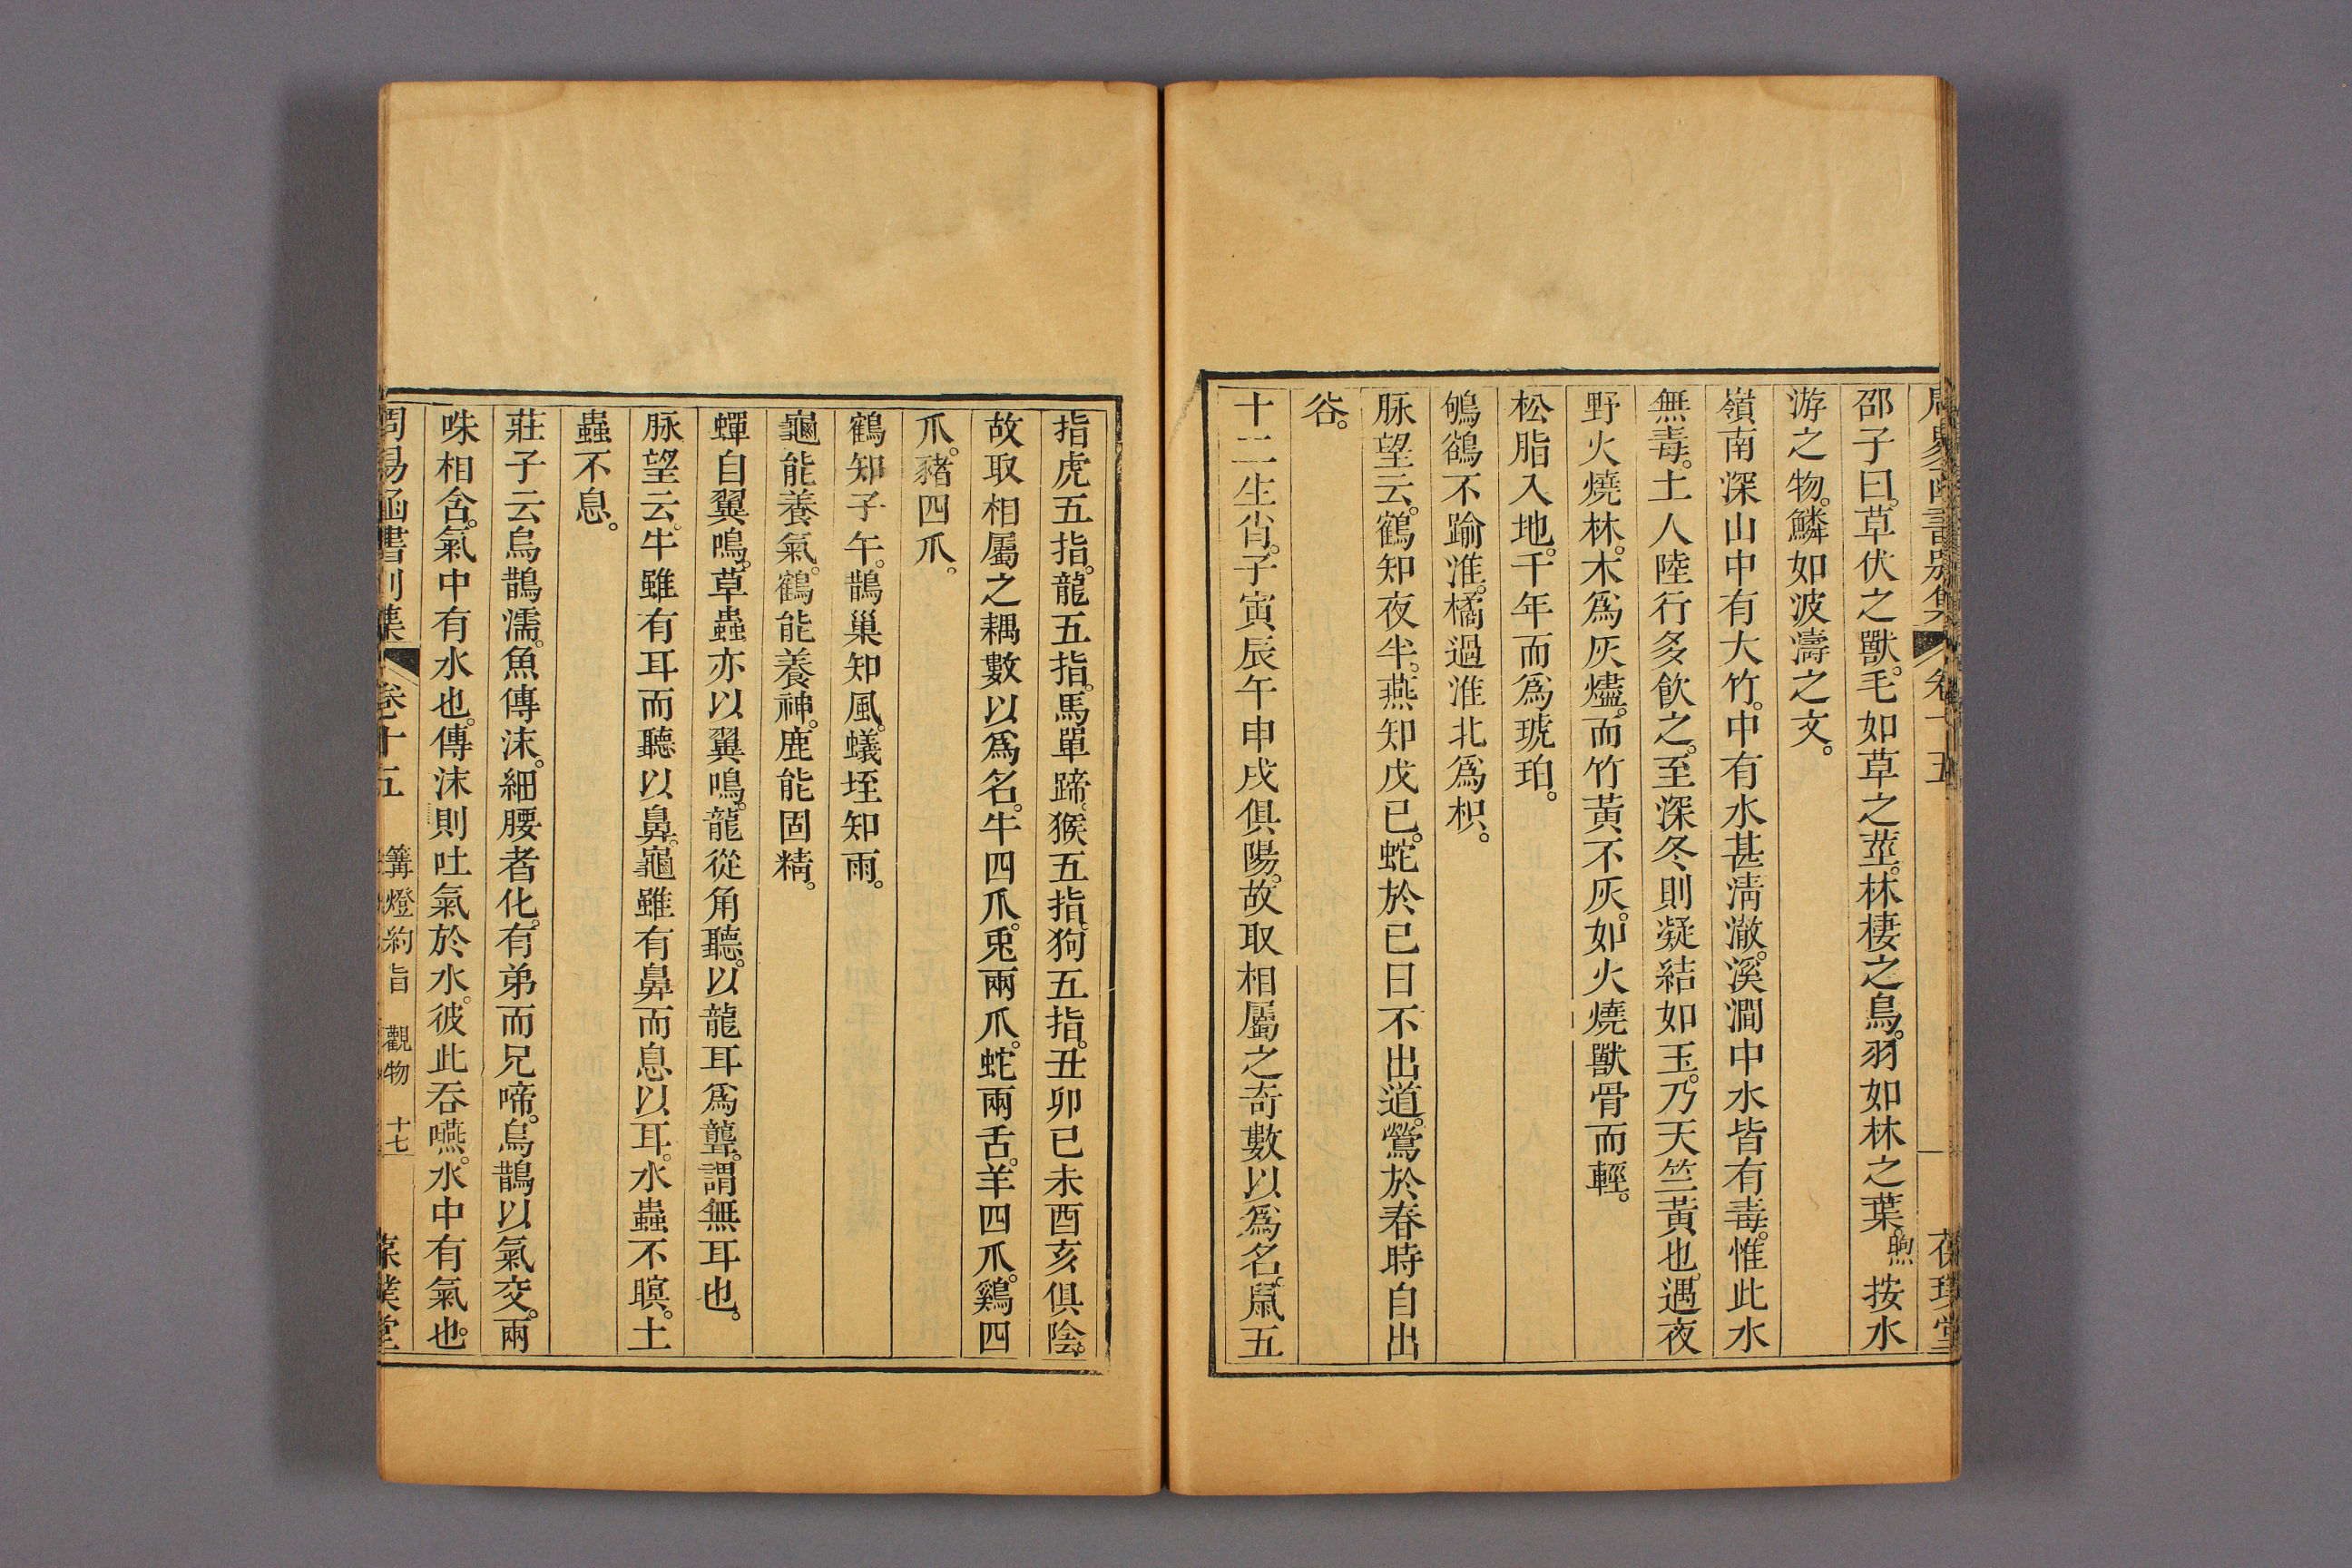 周易函書別集 卷十五 葆璞堂
邵子曰。草伏之獸。毛如草之莖。林棲之鳥。羽如林之葉。煦按水
游之物。鱗如波濤之文。
嶺南深山中有大竹。中有水甚清澈。溪澗中水皆有毒。惟此水
無毒。土人陸行多飲之。至深冬則凝結如玉。乃天竺黃也。遇夜
野火燒林。木爲灰燼。而竹黃不灰。如火燒獸骨而輕。
松脂入地。千年而爲琥珀。
鴝鵒不踰淮。橘過淮北爲枳。
脉望云。鶴知夜半。燕知戊已。蛇於已日不出道。鶯於春時自出
谷。
十二生肖。子寅辰午申戌俱陽。故取相屬之奇數以爲名。鼠五
指虎五指。龍五指。馬單蹄。猴五指。狗五指。丑卯已未酉亥俱陰。
故取相屬之耦數以爲名。牛四爪。兎兩爪。蛇兩舌。羊四爪。鷄四
爪。豬四爪。
鶴知子午。鵲巢知風。蟻垤知雨。
龜能養氣。鶴能養神。鹿能固精。
蟬自翼鳴。草蟲亦以翼鳴。龍從角聽。以龍耳爲聾。謂無耳也。
脉望云。牛雖有耳而聽以鼻。龜雖有鼻而息以耳。水蟲不瞑。土
蟲不息。
莊子云烏鵲濡。魚傳沫。細腰者化。有弟而兄啼。烏鵲以氣交。兩
咮相含。氣中有水也。傳沫則吐氣於水。彼此吞嚥。水中有氣也。
周易函書別集 卷十五 篝燈約旨 觀物 十七 葆璞堂